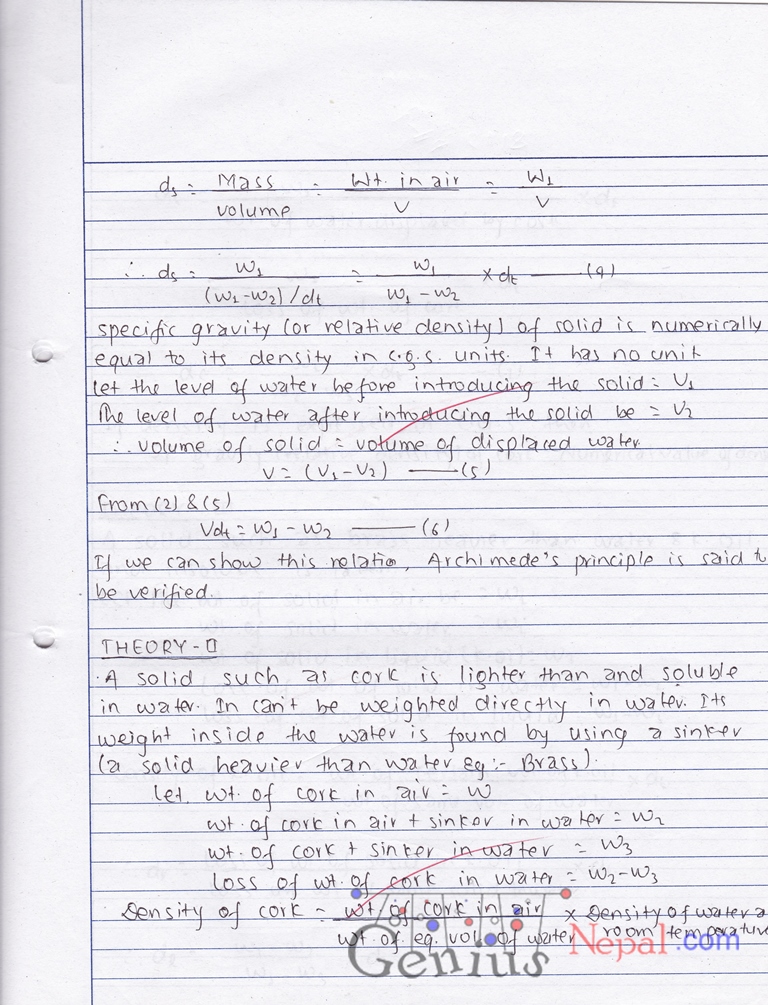 ds = Mass/volume = Wt. in air/V = W1/V
∴ ds = W1/(W1-W2)/dt = W1/W1-W2 × dt —— (4)
specific gravity (or relative density) of solid is numerically
equal to its density in c.g.s. units. It has no unit
let the level of water before introducing the solid = V1
The level of water after introducing the solid be = V2
∴ volume of solid = volume of displaced water.
V = (V1-V2) —— (5)
From (2) & (5)
Vdt = W1 - W2 —— (6)
If we can show this relatio, Archimede's principle is said t
be verified.
THEORY - II
A solid such as cork is lighter than and soluble
in water. In can't be weighted directly in water. Its
weight inside the water is found by using a sinker
(a solid heavier than water eg:- Brass).
let, wt. of cork in air = W
wt. of cork in air + sinker in water = W2
wt. of cork + sinker in water = W3
Loss of wt. of cork in water = W2-W3
Density of cork = wt. of cork in air/wt. of eq. vol. of water × Density of water a room temperature
Genius Nepal.com